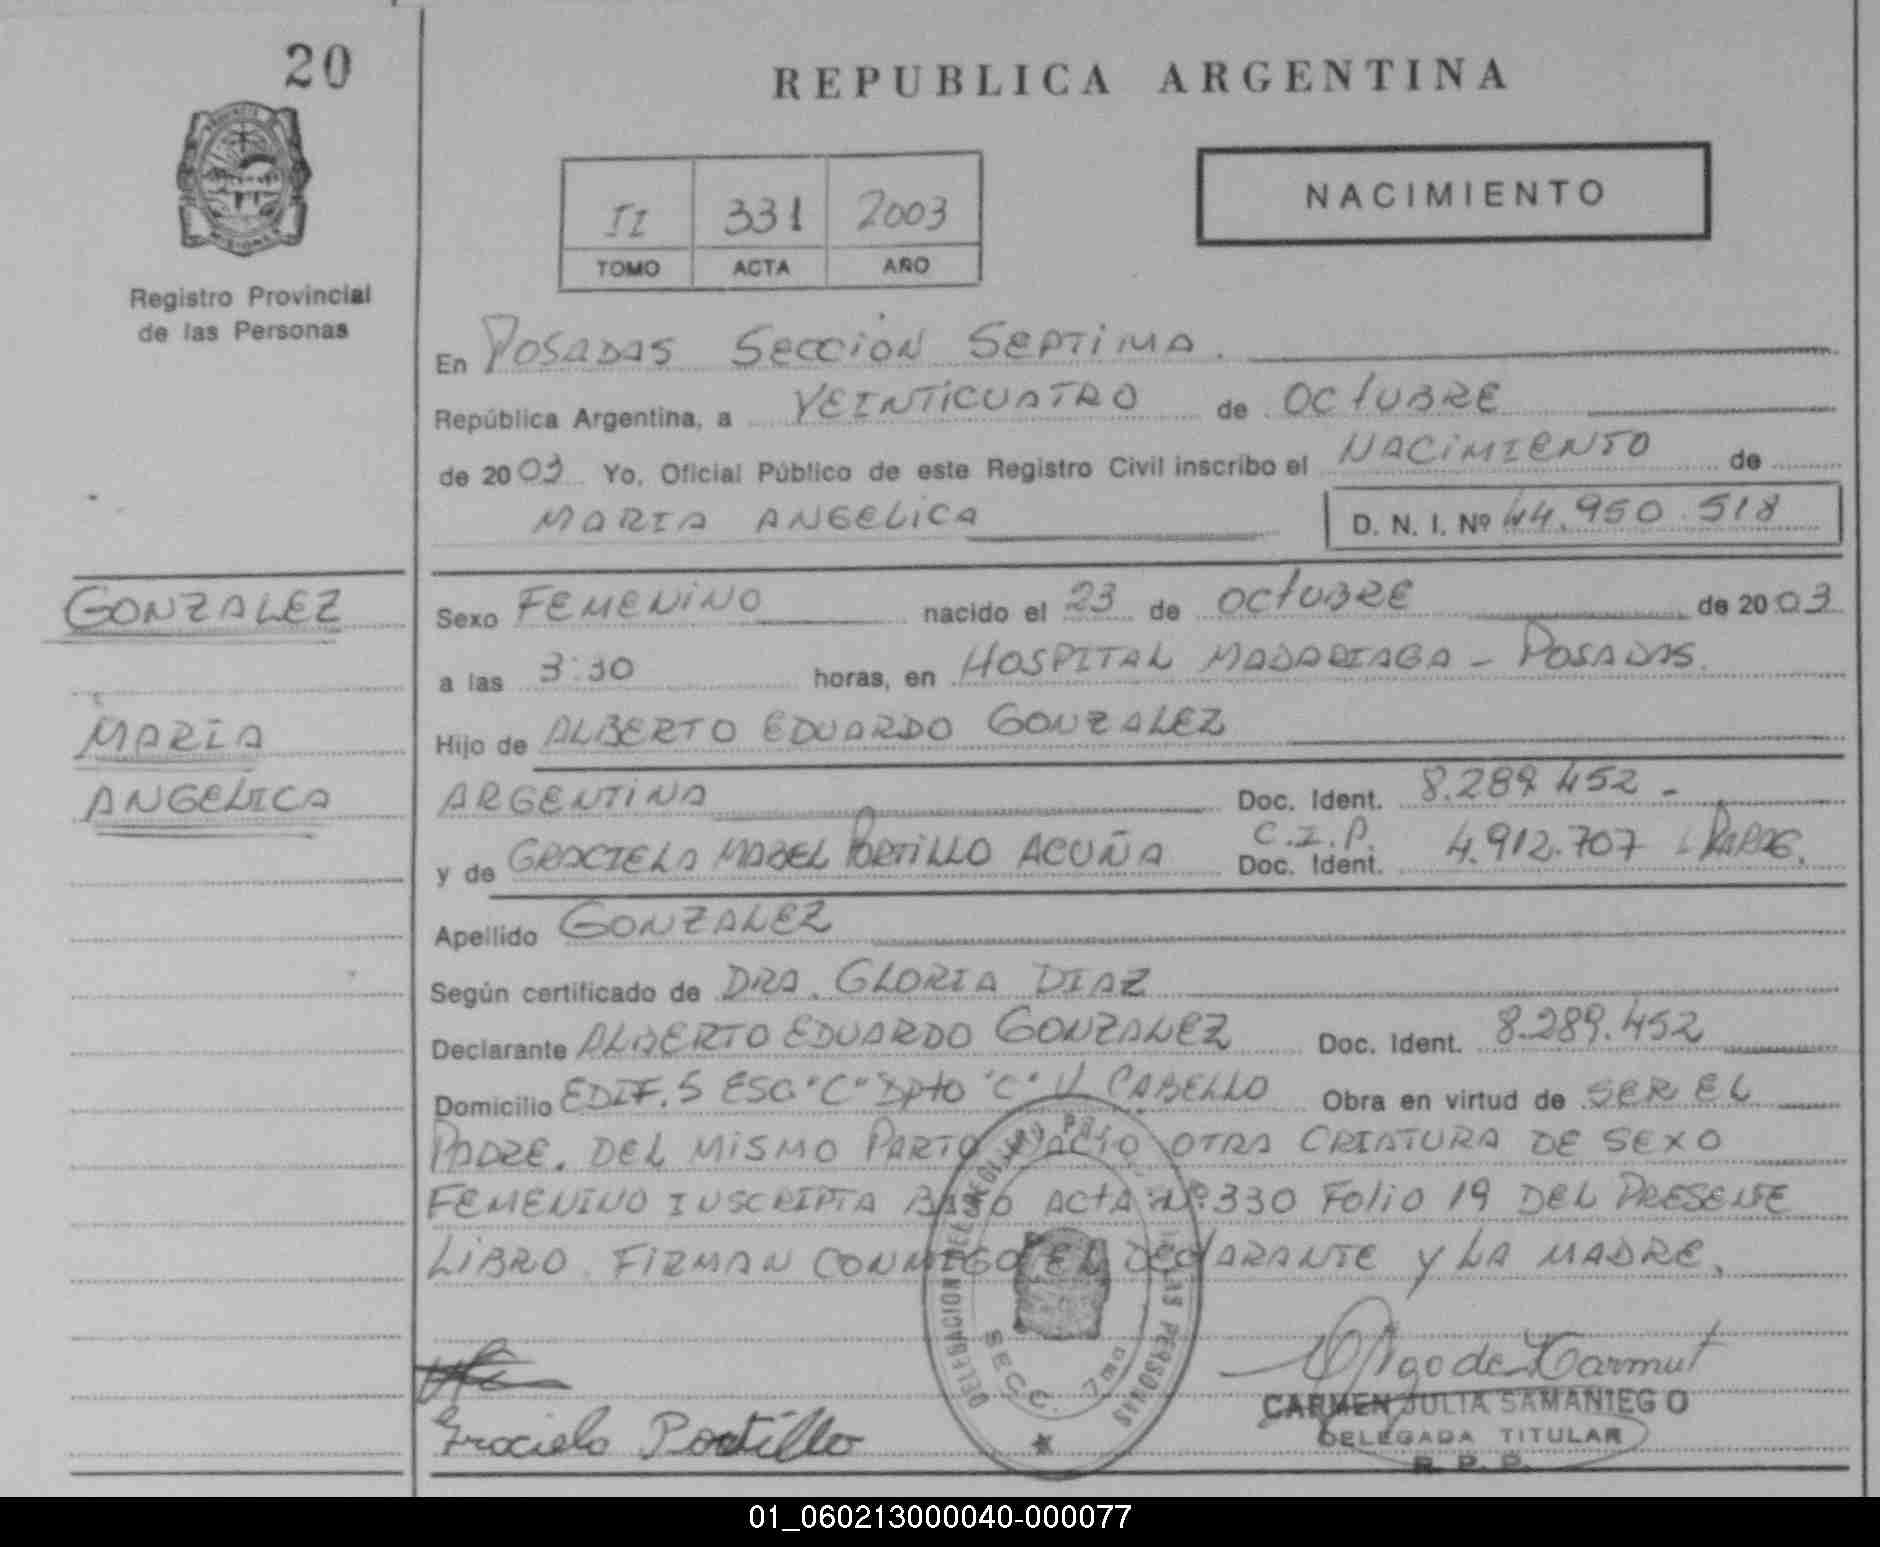 20
REPUBLICA ARGENTINA
NACIMIENTO
II 331 2003
TOMO ACTA AÑO
Registro Provincial
de las Personas
En POSADAS SECCION SEPTIMA.
República Argentina, a VEINTICUATRO de OCTUBRE
de 2003 Yo, Oficial Público de este Registro Civil inscribo el NACIMIENTO de
MARIA ANGELICA D. N. I. Nº 44.950.518
GONZALEZ
MARIA
ANGELICA
Sexo FEMENINO nacido el 23 de OCTUBRE de 2003
a las 3:30 horas, en HOSPITAL MADARIAGA - POSADAS.
Hijo de ALBERTO EDUARDO GONZALEZ
ARGENTINA Doc. Ident. 8.289.452 -
y de GRACIELA MABEL PORTILLO ACUÑA C.I.P. Doc. Ident. 4.912.707
Apellido GONZALEZ
Según certificado de DRA. GLORIA DIAZ
Declarante ALBERTO EDUARDO GONZALEZ Doc. Ident. 8.289.452
Domicilio EDIF. 5 ESC "C" DPTO "C" V. CABELLO Obra en virtud de SER EL
PADRE. DEL MISMO PARTO NACIO OTRA CRIATURA DE SEXO
FEMENINO INSCRIPTA BAJO ACTA Nº 330 FOLIO 19 DEL PRESENTE
LIBRO. FIRMAN CONMIGO EL DECLARANTE Y LA MADRE.
Graciela Portillo
CARMEN JULIA SAMANIEGO
DELEGADA TITULAR
R. P. P.
DELEGACION DEL REGISTRO PROV. DE LAS PERSONAS
SECC. 7ma
01_060213000040-000077